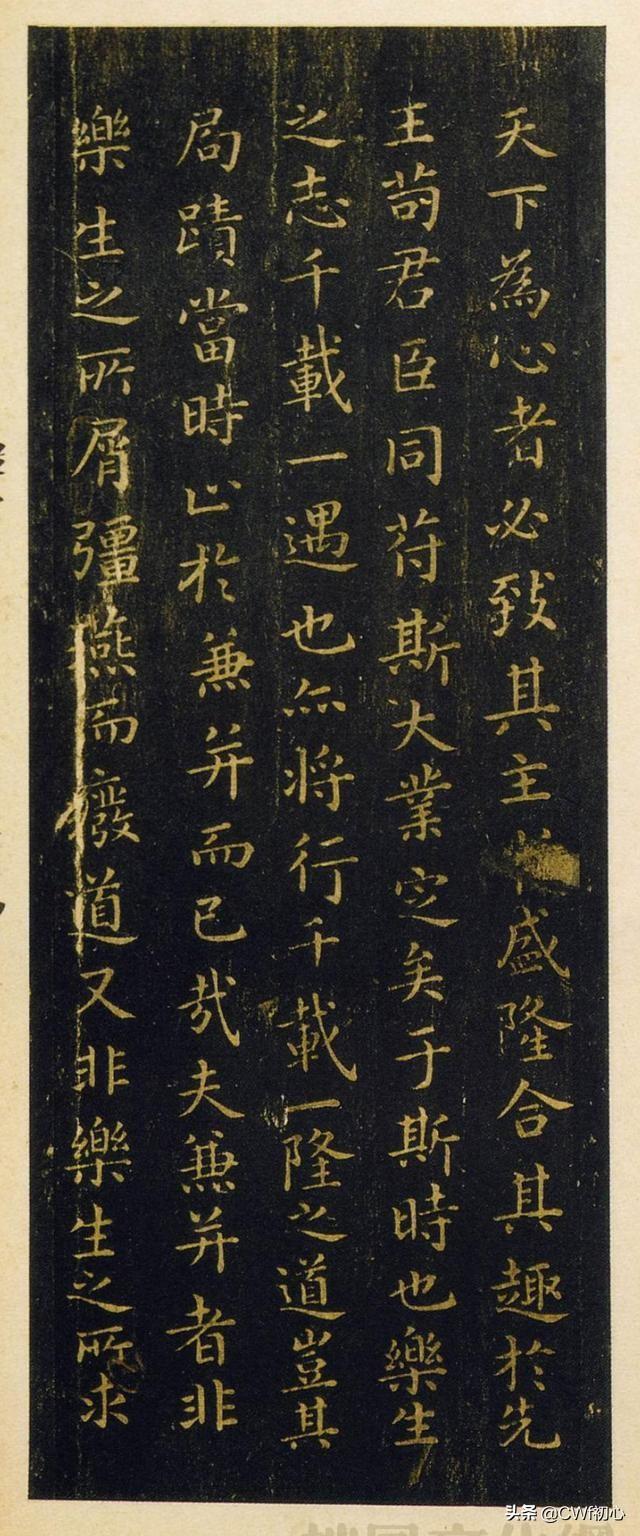 天下為心者必致其主扵盛隆合其趣於先
王苟君臣同苻斯大業定矣于斯時也樂生
之志千載一遇也亦将行千載一隆之道豈其
局蹟當時止於兼并而已哉夫兼并者非
樂生之所屑彊燕而廢道又非樂生之所求
头条 @CWf初心